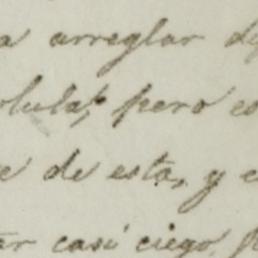 a arreglar
olula, pero
e de esta, y
casi ciego